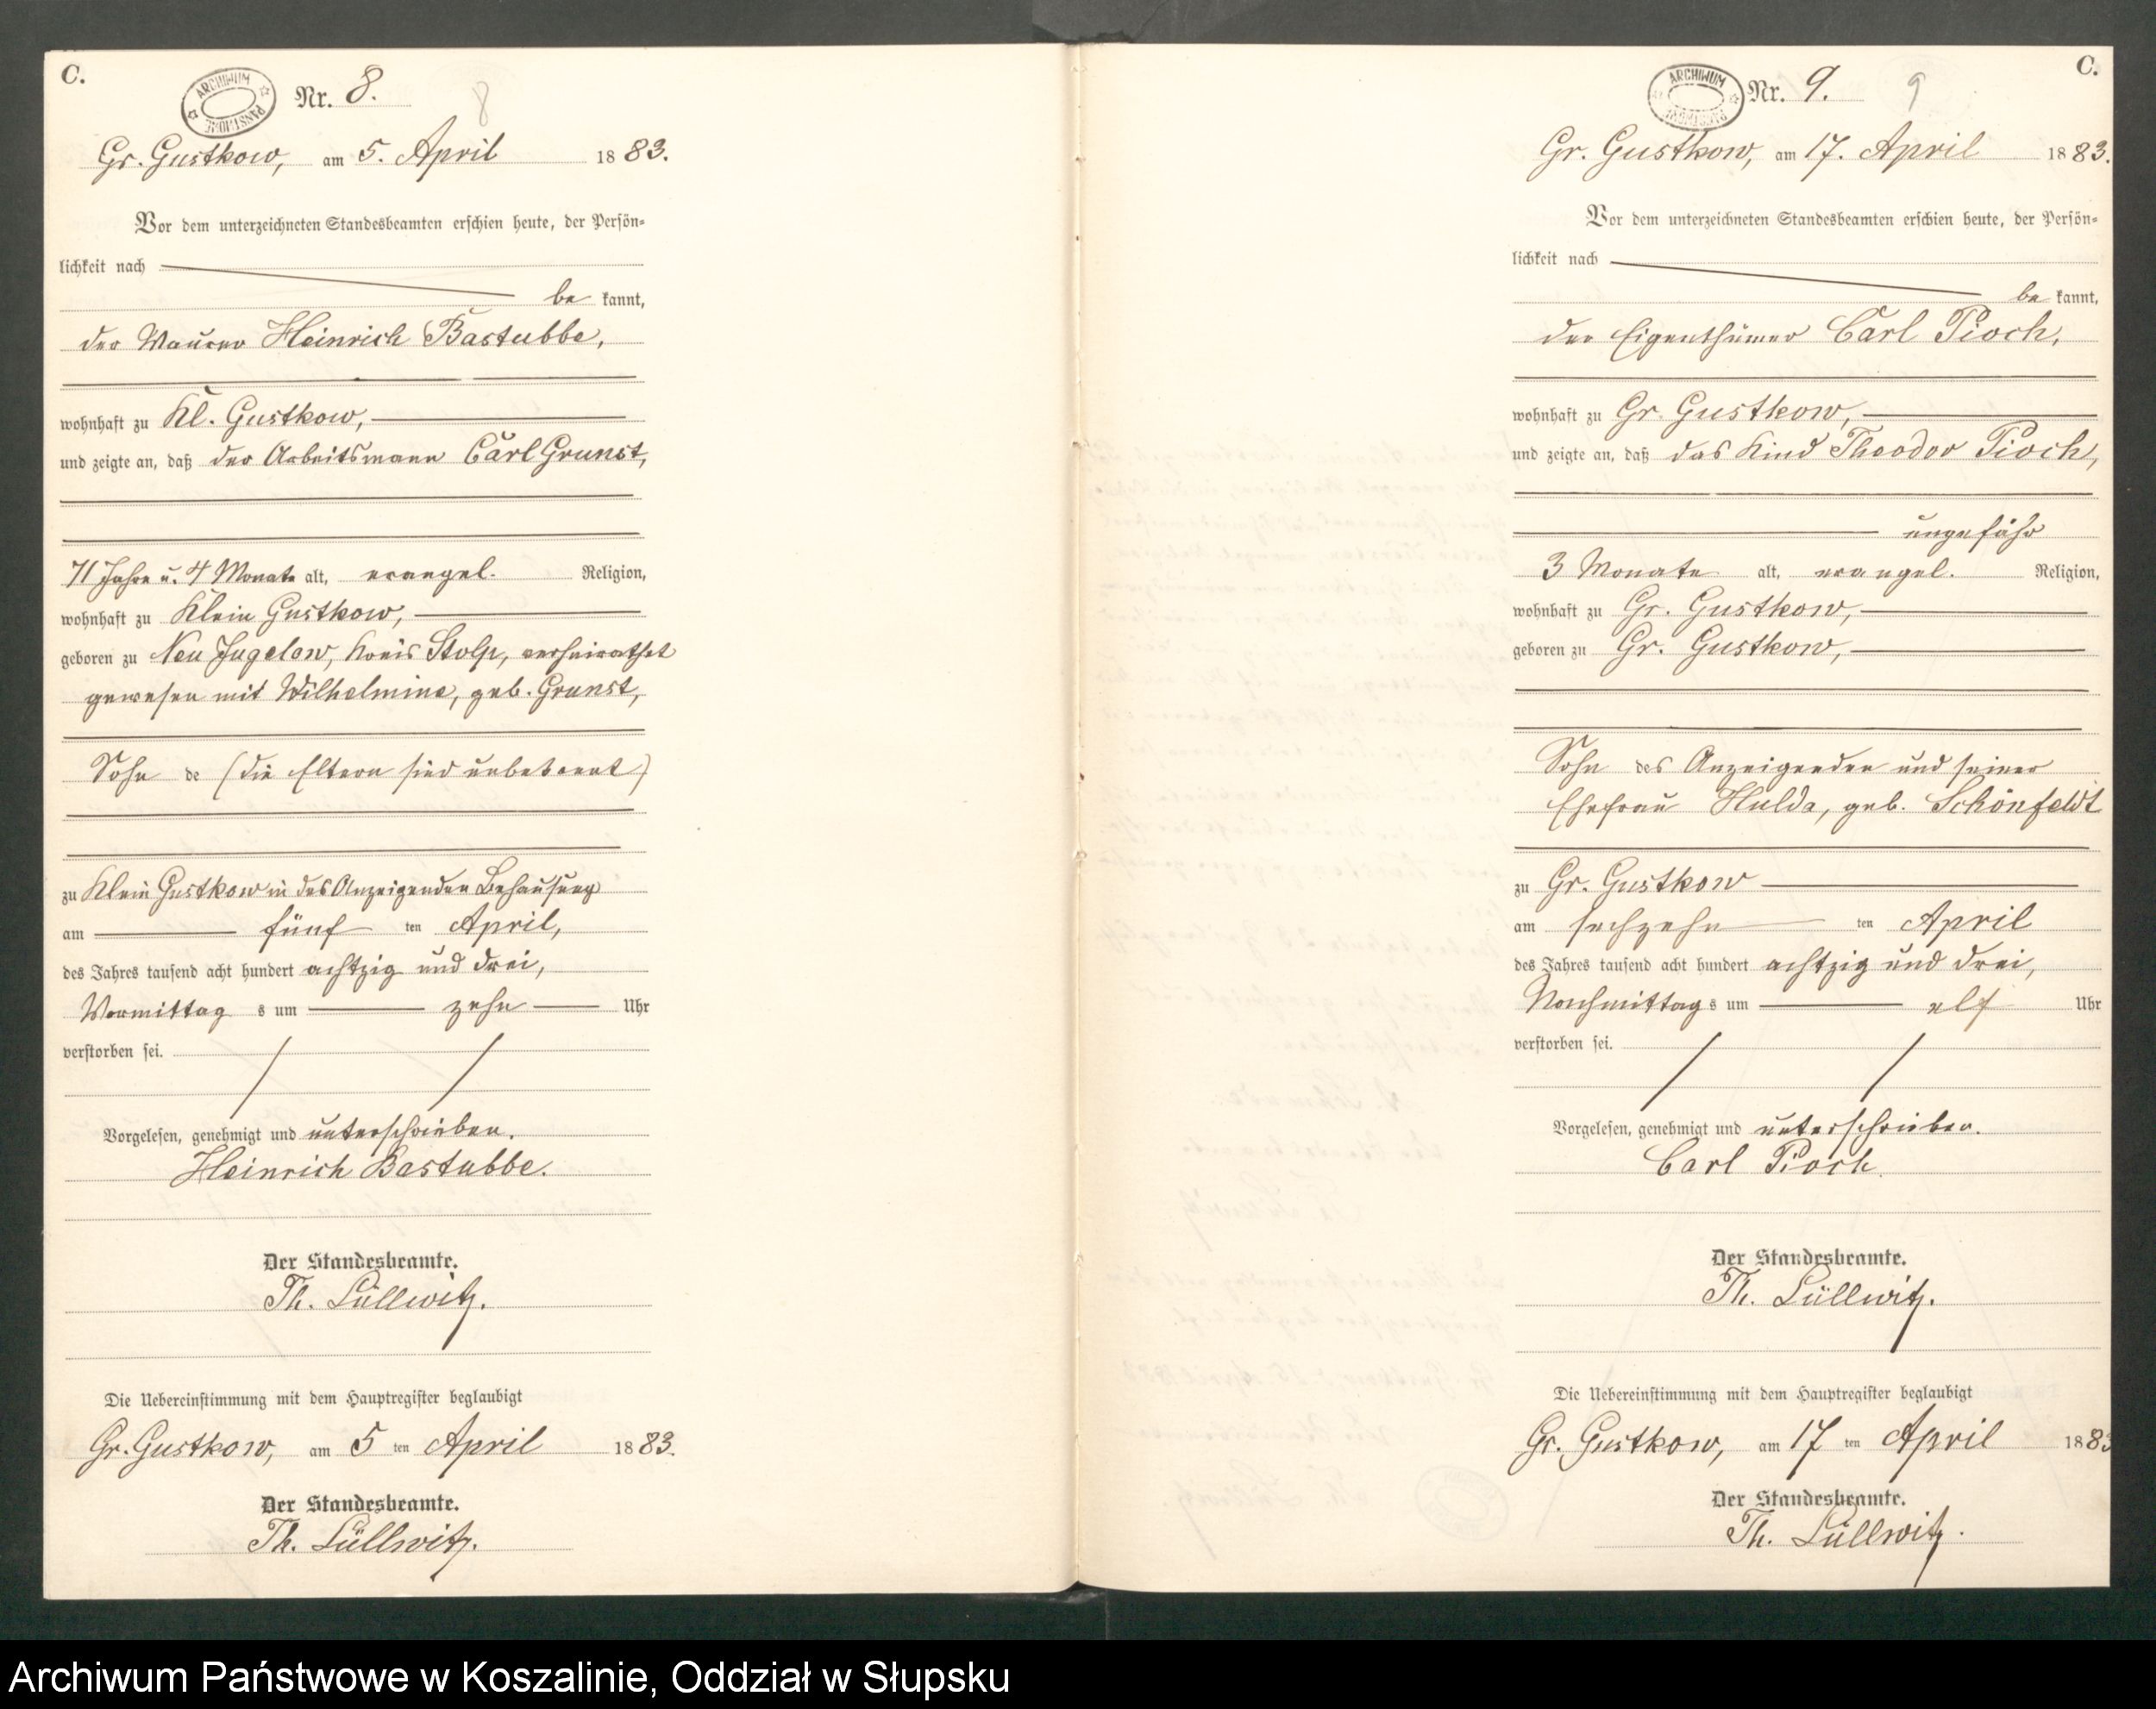 C.
ARCHIWUM PAŃSTWOWE
Nr. 8.
8
Gr. Gustkow, am 5. April 1883.
Vor dem unterzeichneten Standesbeamten erschien heute, der Persön-
lichkeit nach
be kannt,
der Maurer Heinrich Bastubbe,
wohnhaft zu Kl. Gustkow,
und zeigte an, daß der Arbeitsmann Carl Grunst,
71 Jahre u. 4 Monate alt, evangel. Religion,
wohnhaft zu Klein Gustkow,
geboren zu Neu Jugelow, Kreis Stolp, verheirathet
gewesen mit Wilhelmine, geb. Grunst,
Sohn de (die Eltern sind unbekannt)
zu Klein Gustkow in des Anzeigenden Behausung
am fünf ten April,
des Jahres tausend acht hundert achtzig und drei,
Vormittag s um zehn Uhr
verstorben sei.
Vorgelesen, genehmigt und unterschrieben.
Heinrich Bastubbe.
Der Standesbeamte.
Th. Lüllwitz.
Die Uebereinstimmung mit dem Hauptregister beglaubigt
Gr. Gustkow, am 5 ten April 1883.
Der Standesbeamte.
Th. Lüllwitz.
C.
ARCHIWUM PAŃSTWOWE
Nr. 9.
9
Gr. Gustkow, am 17. April 1883.
Vor dem unterzeichneten Standesbeamten erschien heute, der Persön-
lichkeit nach
be kannt,
der Eigenthümer Carl Pioch,
wohnhaft zu Gr. Gustkow,
und zeigte an, daß das Kind Theodor Pioch,
ungefähr
3 Monate alt, evangel. Religion,
wohnhaft zu Gr. Gustkow,
geboren zu Gr. Gustkow,
Sohn des Anzeigenden und seiner
Ehefrau Hulda, geb. Schönfeldt
zu Gr. Gustkow
am sechzehn ten April
des Jahres tausend acht hundert achtzig und drei,
Nachmittag s um elf Uhr
verstorben sei.
Vorgelesen, genehmigt und unterschrieben.
Carl Pioch.
Der Standesbeamte.
Th. Lüllwitz.
Die Uebereinstimmung mit dem Hauptregister beglaubigt
Gr. Gustkow, am 17 ten April 1883
Der Standesbeamte.
Th. Lüllwitz.
Archiwum Państwowe w Koszalinie, Oddział w Słupsku